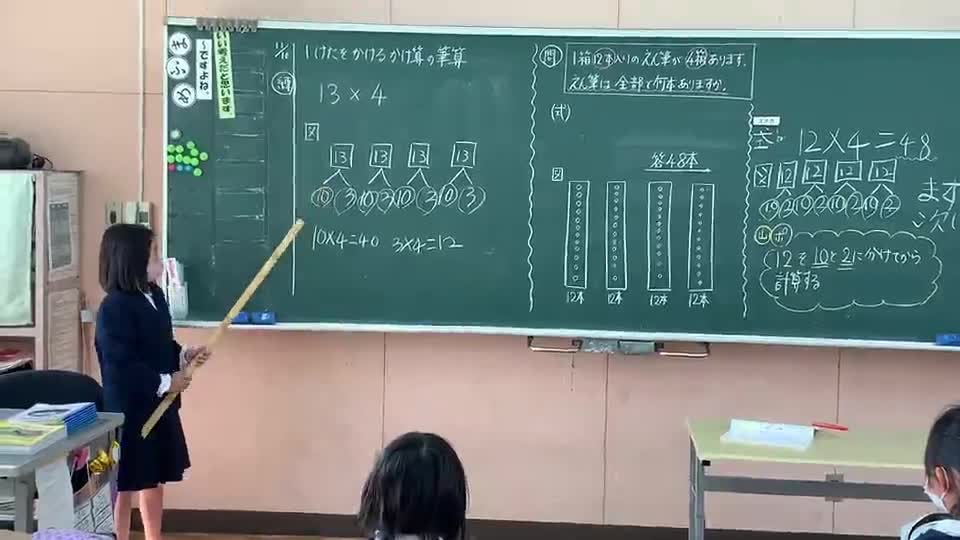 ~ですよね。
いい考えだと思います
1けたをかけるかけ算の筆算
13×4
図
13 13 13 13
10 3 10 3 10 3 10 3
10×4=40 3×4=12
問
1箱12本入りのえん筆が4箱あります。
えん筆は全部で何本ありますか。
(式)
答48本
図
12本 12本 12本 12本
12×4=48
図 12 12 12 12
10 2 10 2 10 2 10 2
ます
次に
山 ポ
12を10と2に分けてから
計算する